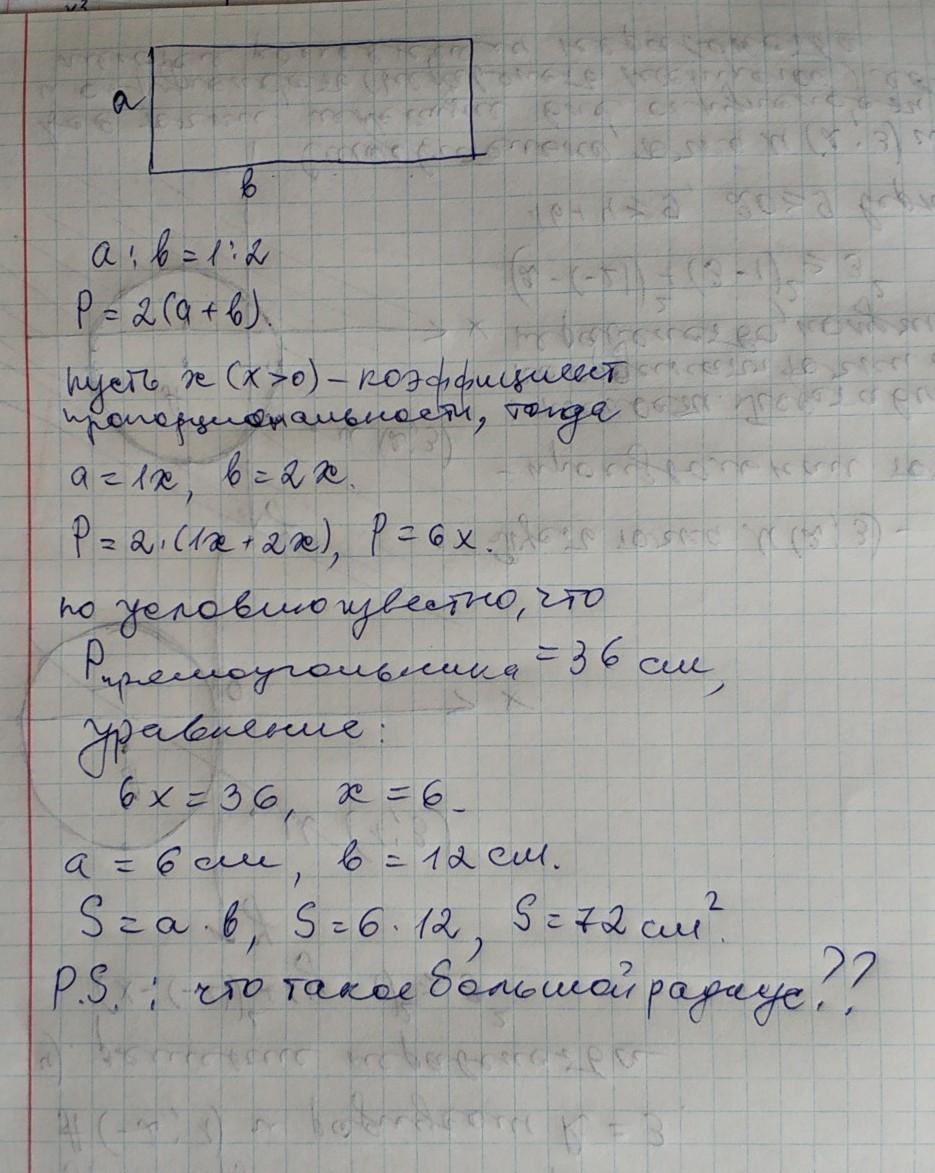 a
в
a : в = 1 : 2
P = 2(a + в).
пусть x (x>0) – коэффициент
пропорциональности, тогда
a = 1x, в = 2x.
P = 2·(1x + 2x), P = 6x.
по условию известно, что
Pпрямоугольника = 36 см,
уравнение:
6x = 36, x = 6.
a = 6 см, в = 12 см.
S = a · в, S = 6 · 12, S = 72 см².
P.S. : что такое большой радиус??